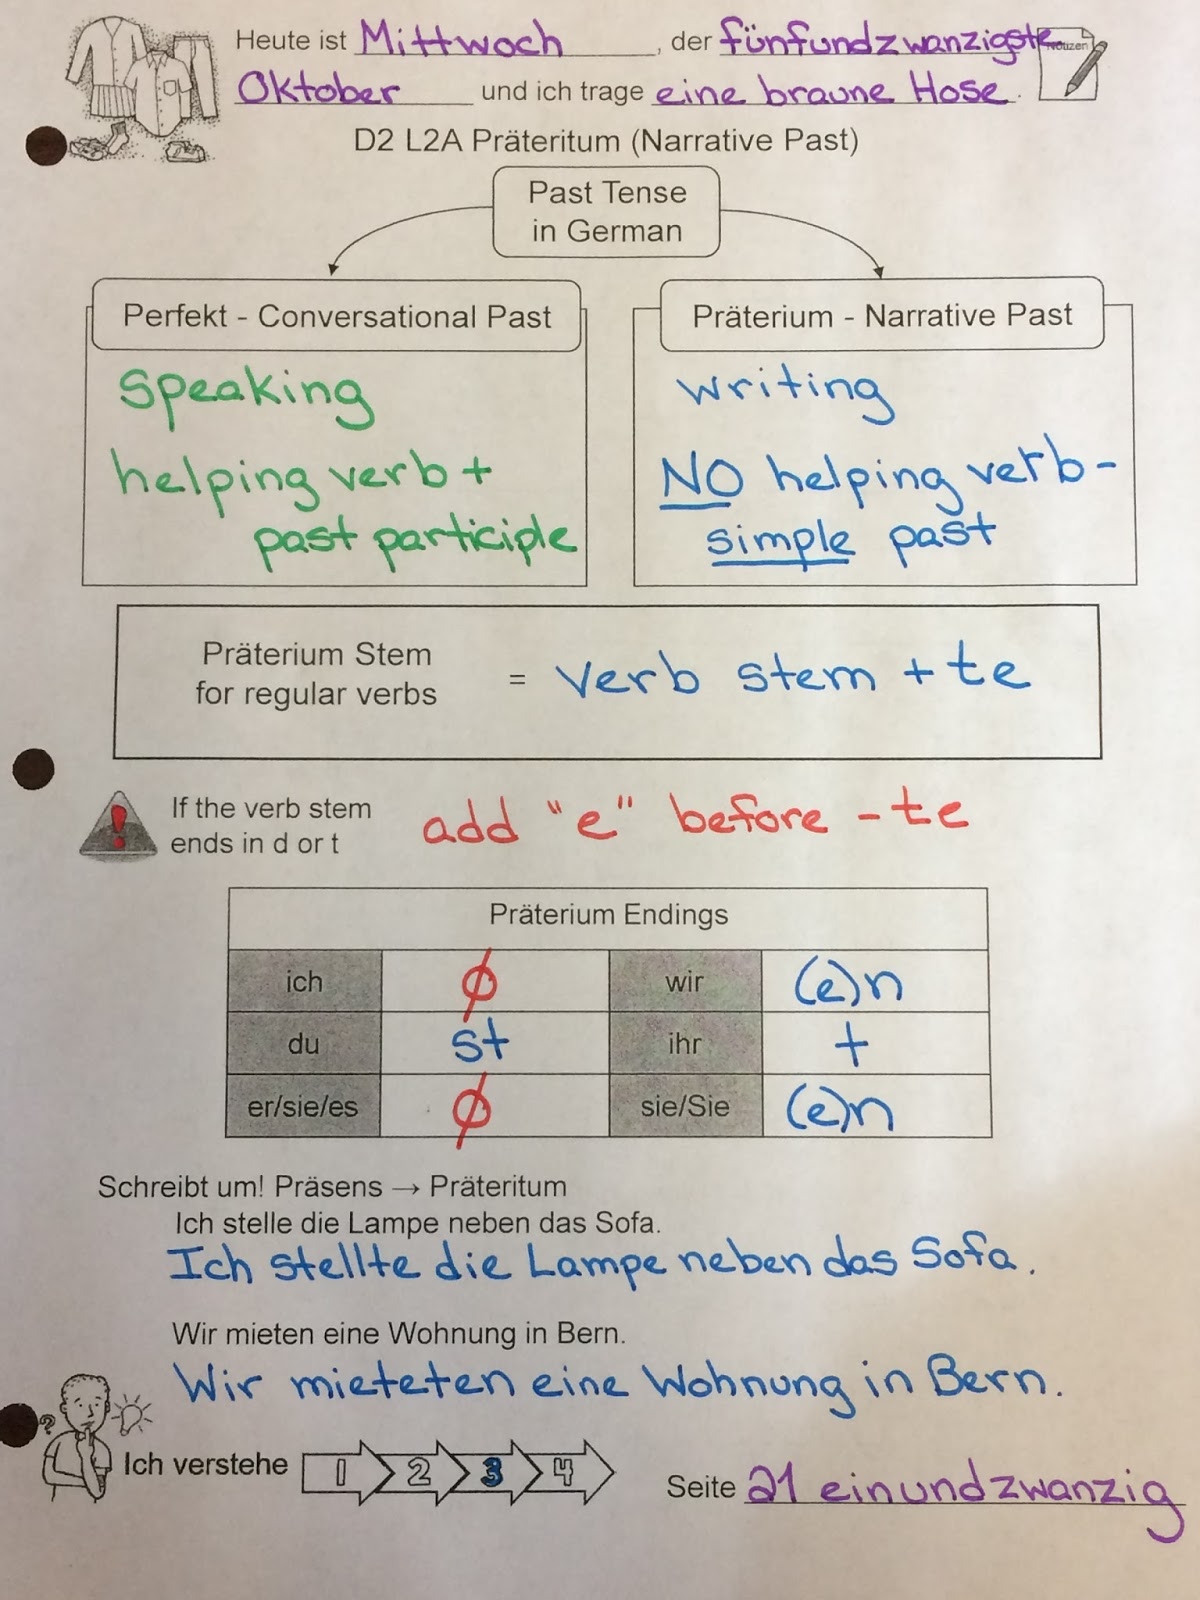 Heute ist Mittwoch, der fünfundzwanzigste
Notizen
Oktober und ich trage eine braune Hose.
D2 L2A Präteritum (Narrative Past)
Past Tense
in German
Perfekt - Conversational Past
speaking
helping verb +
past participle
Präterium - Narrative Past
writing
NO helping verb-
simple past
Präterium Stem
for regular verbs
= verb stem + te
If the verb stem
ends in d or t
add "e" before -te
Präterium Endings
ich ∅ wir (e)n
du st ihr t
er/sie/es ∅ sie/Sie (e)n
Schreibt um! Präsens → Präteritum
Ich stelle die Lampe neben das Sofa.
Ich stellte die Lampe neben das Sofa.
Wir mieten eine Wohnung in Bern.
Wir mieteten eine Wohnung in Bern.
?
Ich verstehe 1 2 3 4
Seite 21 einundzwanzig